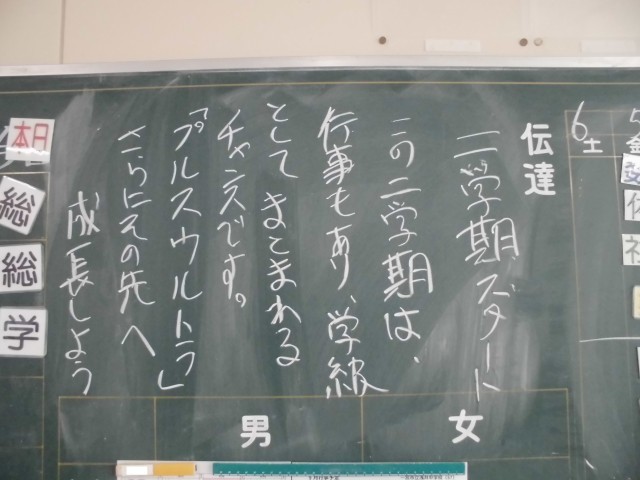 6土
金
伝達
二学期スタート
この二学期は、
行事もあり、学級
としてまとまれる
チャンスです。
「プルスウルトラ」
さらにその先へ
成長しよう
本日
総
総
学
女
男